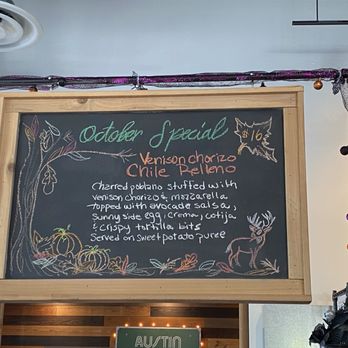 October Special
$16
Venison chorizo
Chile Relleno
Charred poblano stuffed with
venison chorizo & mozzarella
topped with avocado salsa,
sunny side egg, crema, cotija
& crispy tortilla bits
Served on sweet potato puree
AUSTIN